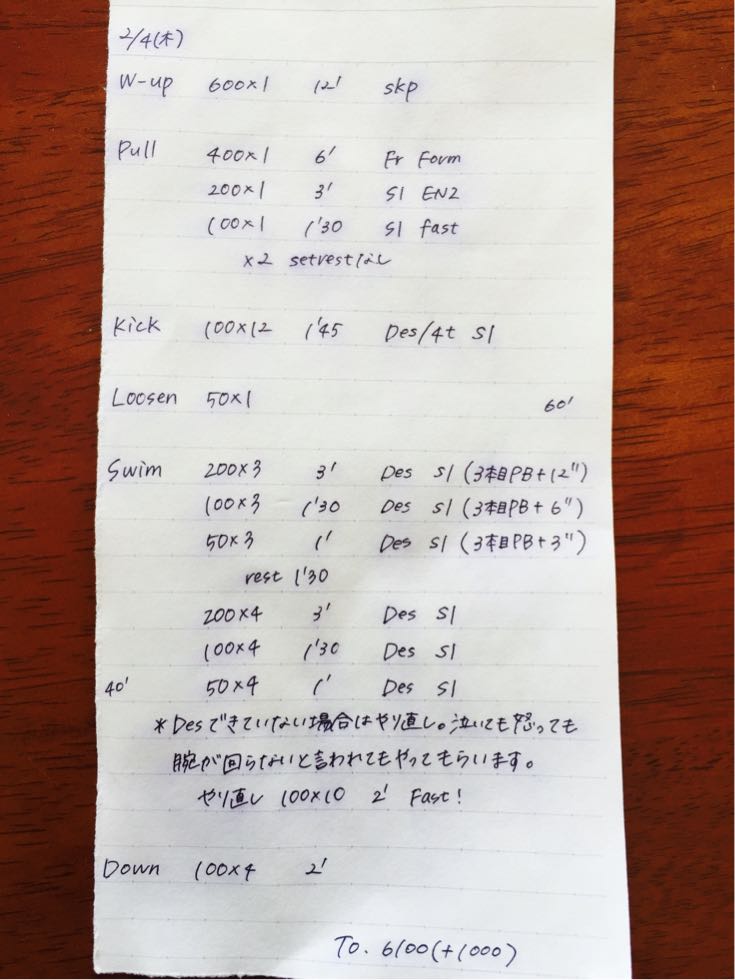 2/4(木)
W-up 600×1 12' skp
Pull 400×1 6' Fr Form
200×1 3' S1 EN2
100×1 1'30 S1 fast
×2 setrestなし
Kick 100×12 1'45 Des/4t S1
Loosen 50×1 60'
Swim 200×3 3' Des S1 (3本目PB+12")
100×3 1'30 Des S1 (3本目PB+6")
50×3 1' Des S1 (3本目PB+3")
rest 1'30
200×4 3' Des S1
100×4 1'30 Des S1
40' 50×4 1' Des S1
*Desできていない場合はやり直し。泣いても怒っても
腕が回らないと言われてもやってもらいます。
やり直し 100×10 2' Fast!
Down 100×4 2'
To. 6100(+1000)